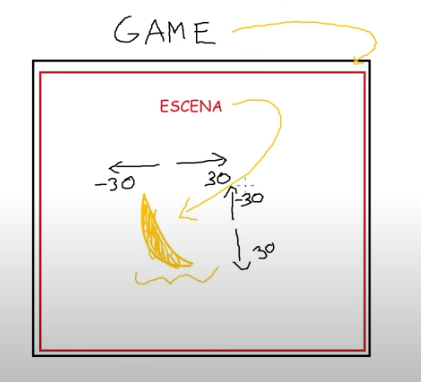 GAME
ESCENA
-30 30
-30
30